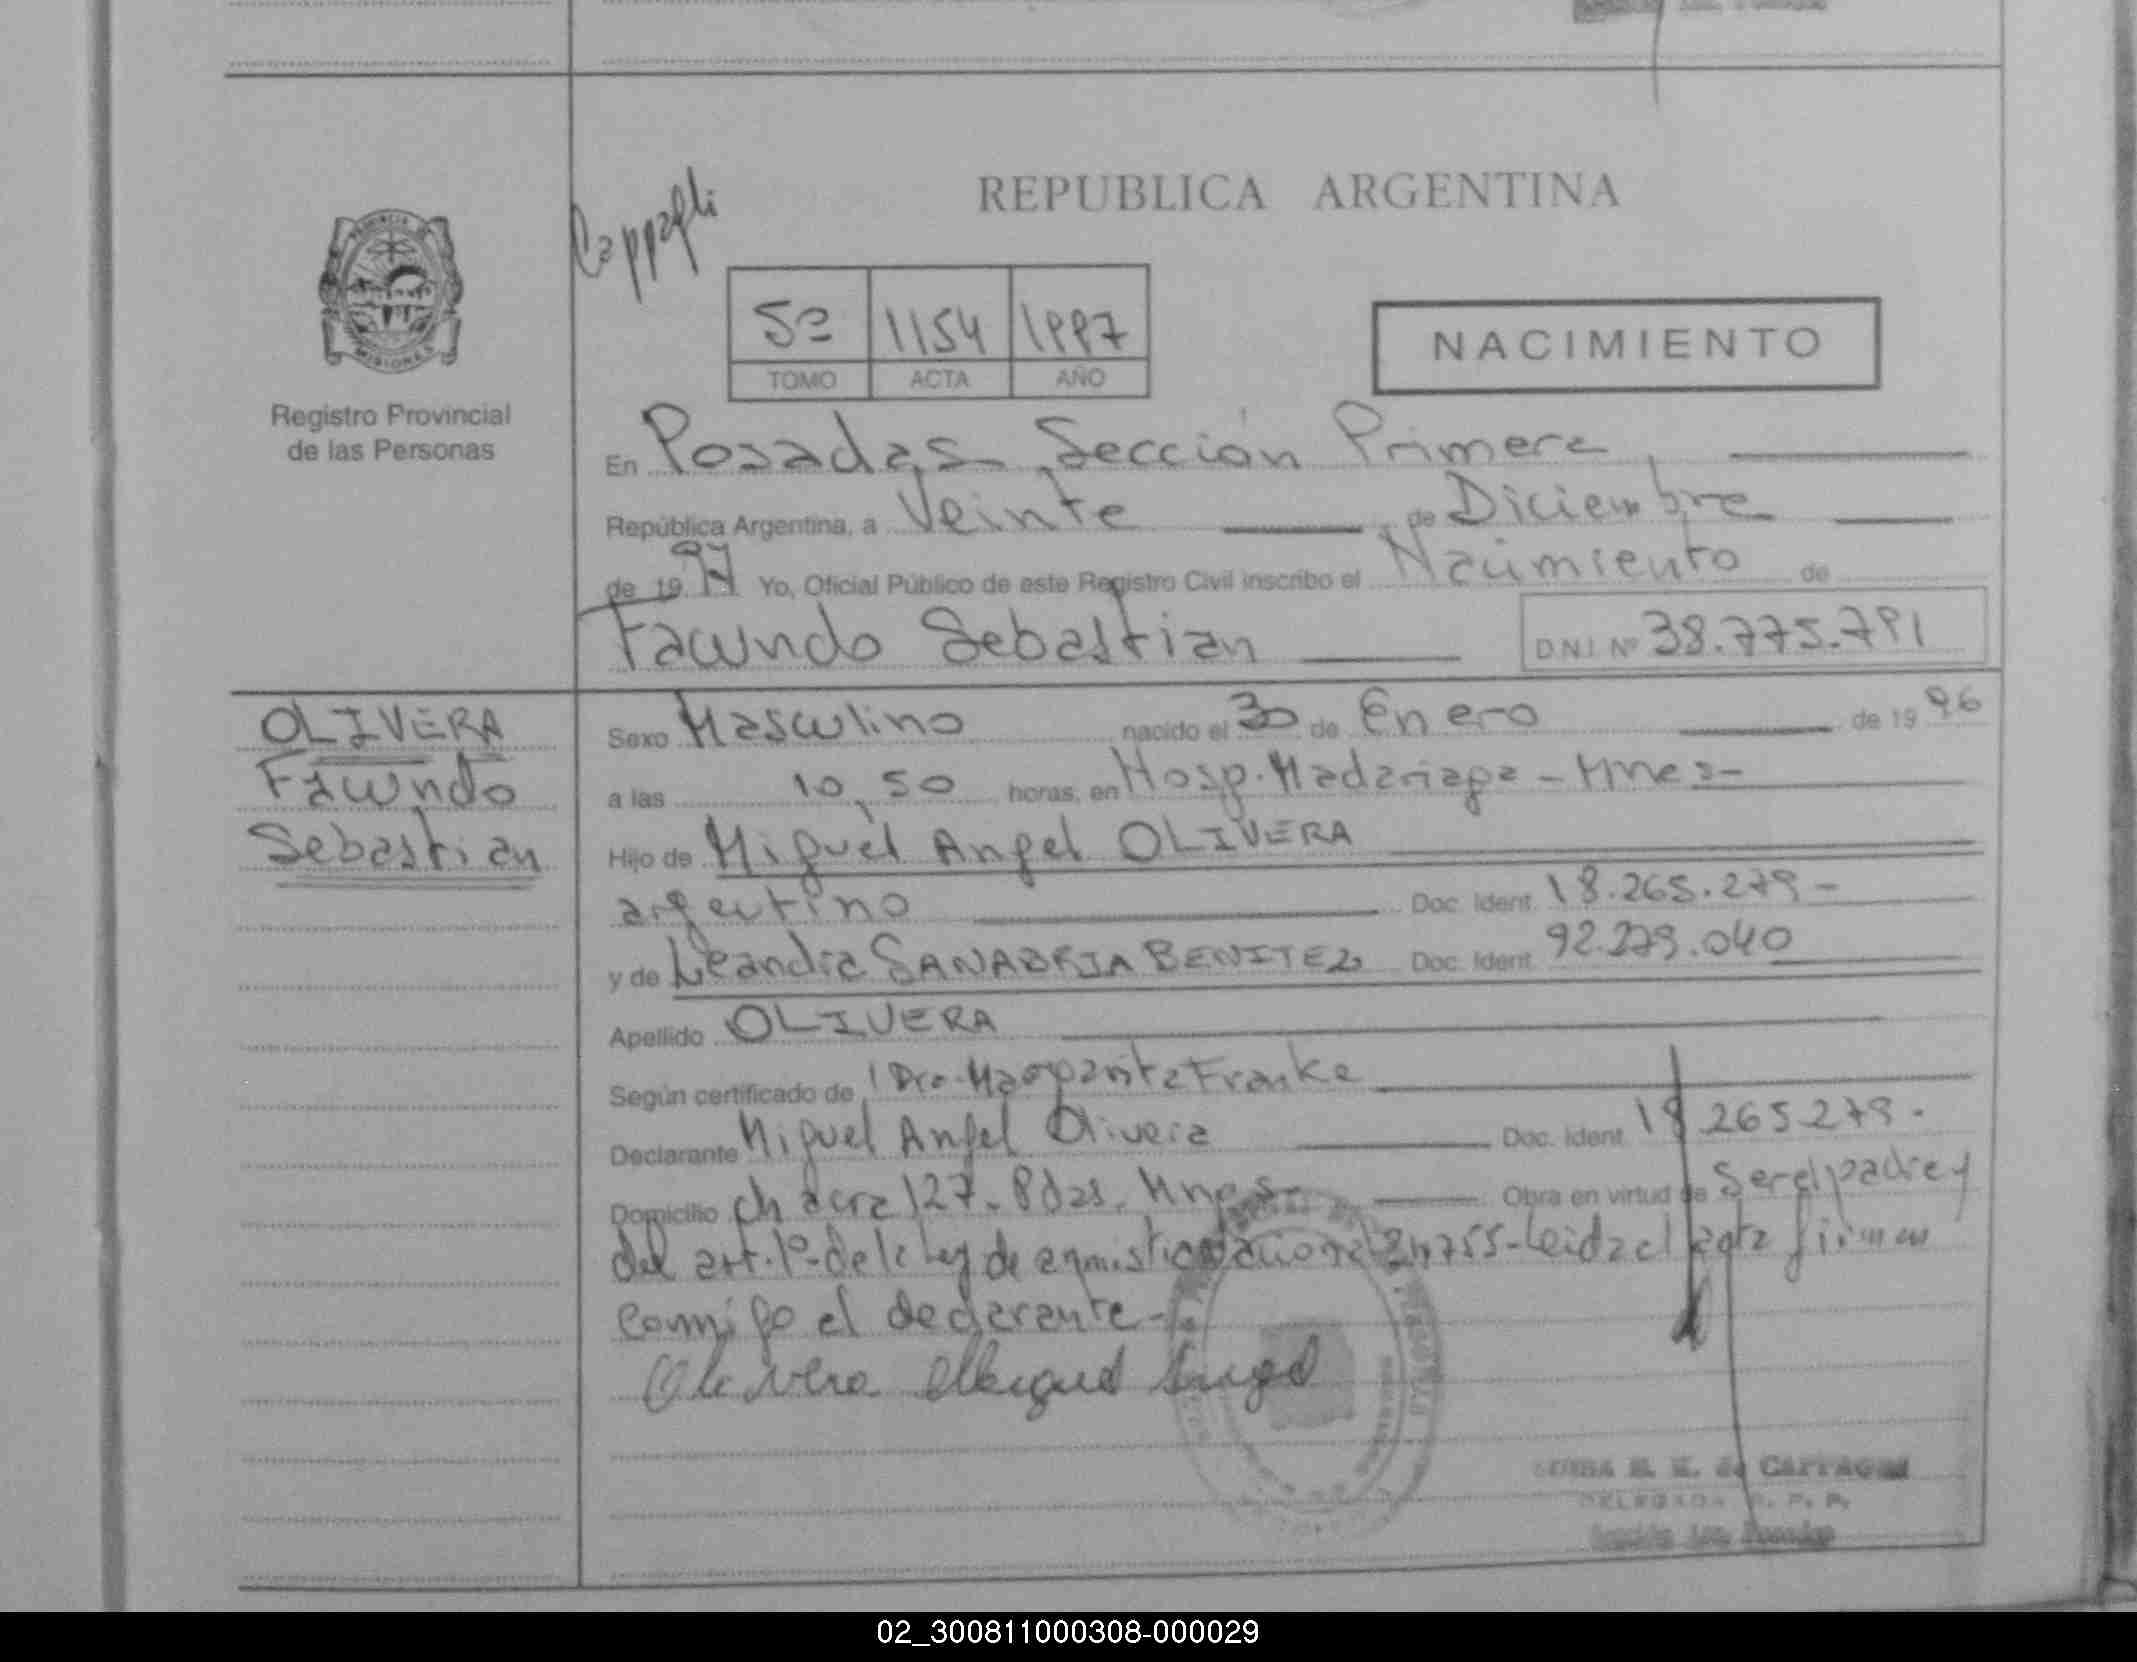 REPUBLICA ARGENTINA
Cappagli
5º 1154 1997
TOMO ACTA AÑO
NACIMIENTO
PROVINCIA DE
MISIONES
Registro Provincial
de las Personas
En Posadas Sección Primera,
República Argentina, a Veinte de Diciembre
de 1997 Yo, Oficial Público de este Registro Civil inscribo el Nacimiento de
Facundo Sebastian DNI Nº 38.775.791
OLIVERA
Facundo
Sebastian
Sexo Masculino nacido el 30 de Enero de 1996
a las 10,50 horas, en Hosp. Madariaga - Mnes -
Hijo de Miguel Angel OLIVERA
argentino Doc. Ident. 18.265.279 -
y de Leandra SANABRIA BENITEZ Doc. Ident. 92.279.040
Apellido OLIVERA
Según certificado de Dra. Margarita Franke
Declarante Miguel Angel Olivera Doc. Ident. 18 265 279 -
Domicilio Chacra 127 - Pdas. Mnes - Obra en virtud de Ser el padre y
del art. 1º de la Ley de amnistia nacional 24755 - Leida el acta firma
conmigo el declarante -
Olivera Miguel Angel
E. de CAPPAGLI
DELEGADA R. P. P.
Sección 1ra. Posadas
02_300811000308-000029